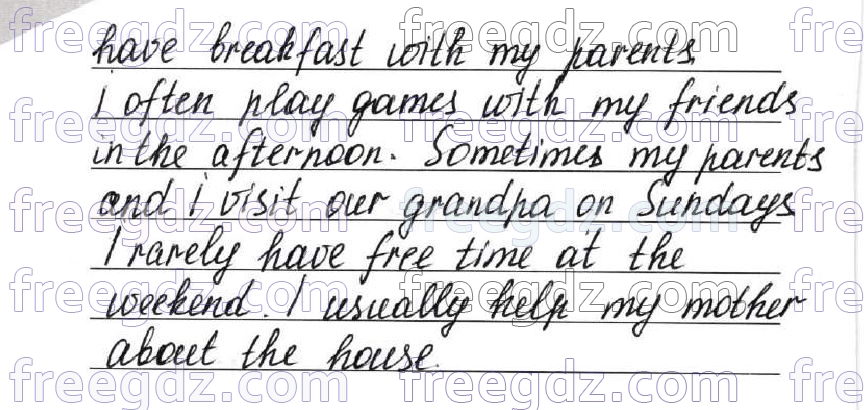 have breakfast with my parents.
I often play games with my friends
in the afternoon. Sometimes my parents
and I visit our grandpa on Sundays.
I rarely have free time at the
weekend. I usually help my mother
about the house.
freegdz.com